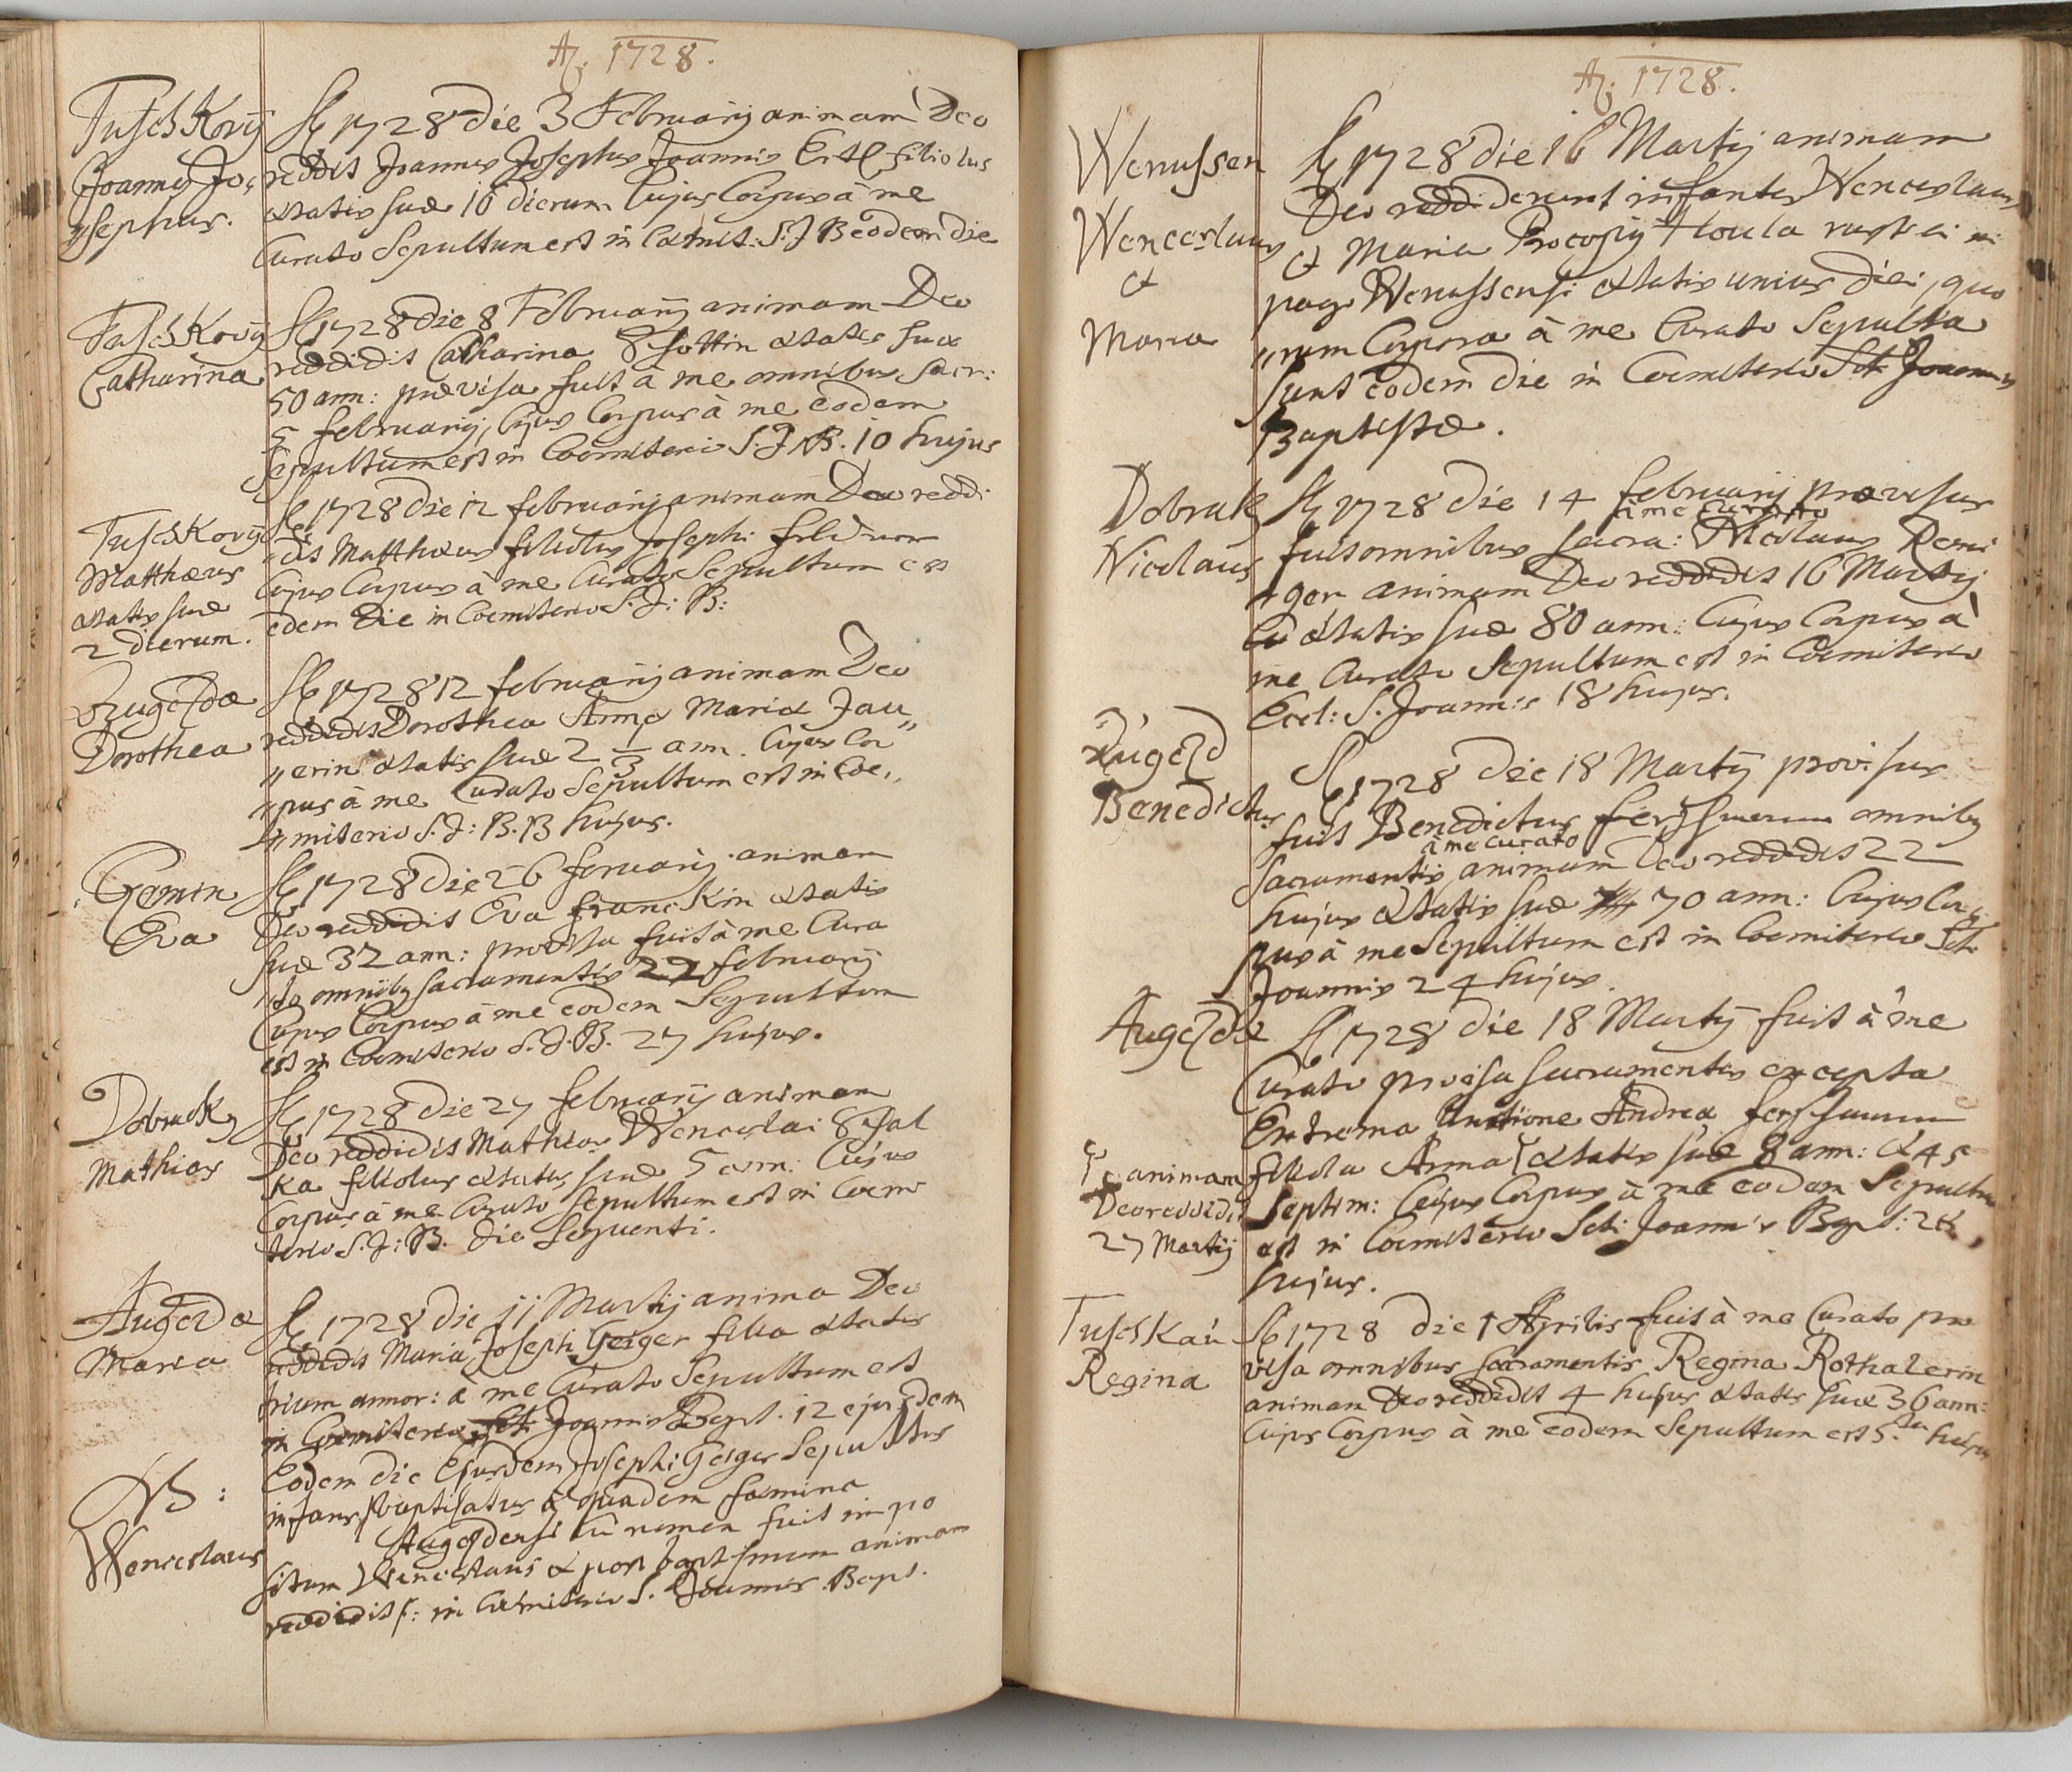 A; 1728.
TuschKovÿ
Joannes Jo,
„sephus.
A 1728 die 3 Februarij animam Deo
reddit Joannes Josephus Joannis Ertl filiolus
ætatis suæ 16 dierum Cujus Corpus à me
Curato Sepultum est in Cœmit: S. J B eodem die
TuschKovÿ
Catharina
A 1728 die 8 Februarij animam Deo
reddidit Catharina ætatis suæ
50 ann: prævisa fuit à me omnibus sacr:
5 februarij, Cujus Corpus à me eodem
sepultum est in Coemiterio S. J. B. 10 hujus
TuschKovÿ
Matthæus
ætatis suæ
2 dierum.
A 1728 die 12 februarij animam Deo reddi
„dit Matthæus filiolus Josephi
Cujus Corpus à me Curato Sepultum est
edem die in Coemiterio S. J: B:
Dorothea
A 1728 12 februarij animam Deo
reddidit Dorothea Annæ Mariæ Jau„
„erin ætatis suæ 2 1/3 ann. Cujus Cor„
„pus à me Curato Sepultum est in Coe„
„miterio S. J: B. 13 hujus.
Gemin
Eva
A 1728 die 26 feruarij animam
Deo reddidit Eva francKin ætatis
suæ 32 ann: provisa fuit à me Cura
„to omnibq sacramentis 22 februarij
Cujus Corpus à me eodem Sepultum
est in Coemiterio S. J. B. 27 hujus.
Dobrack
Mathias
A 1728 die 27 februarij animam
Deo reddidit Mathias Wenceslai
Ka filiolus ætatis suæ 5 ann: Cujus
Corpus à me Curato Sepultum est in Coemi
terio S. J: B. die Sequenti.
Augezdæ
Maria
A 1728 die 11 Martij anima Deo
reddidit Maria Josephi Geiger filia ætatis
trium annor: à me Curato Sepultum est
in Coemiterio Sti Joannis Bapt. 12 ejusdem
NB:
Wenceslaus
Eodem die Ejusdem Josephi Geiger Sepultus
infans /baptisatus à quadem fœmina
Augezdensi Cui nomen fuit impo
situm Wenceslaus & post baptismum animam
reddidit/: in Coemiterio S. Joannis Bapt.
A; 1728.
Wenussen
Wenceslaus
et
Maria
A 1728 die 16 Martij animam
Deo reddiderunt infantes Wenceslaus
et Maria Procopij Houla rustici in
pago Wenussensi ætatis unius diei, quo
„rum Corpora à me Curato Sepulta
sunt eodem die in Coemiterio Sti Joannis
Baptistæ.
Dobrak
Nicolaus
A 1728 die 14 februarij provisus
à me Curato
fuit omnibus sacra: Nicolaus Reni
„ger animam Deo reddidit 16 Martij
ætatis suæ 80 ann: Cujus Corpus à
me Curato Sepultum est in Coemiterio
Eccl: S. Joannis 18 hujus.
Augezd
Benedictus
A 1728 die 18 Martij provisus
fuit Benedictus omnibq
à me curato
Sacramentis animam Deo reddidit 22
hujus ætatis suæ 70 ann: Cujus Cor„
pus à me Sepultum est in Coemiterio Sti
Joannis 24 hujus.
Augezdæ
A 1728 die 18 Martij fuit à me
Curato provisa sacramentis excepta
Extrema Unctione Andreæ
filiola Anna ætatis suæ 8 ann: & 45
septim: Cujus Corpus à me eodem Sepultum
est in Coemiterio Sti Joannis Bapt: 28
hujus.
animam
Deo reddidit
27 Martij
TuschKau
Regina
A 1728 die 1 Aprilis fuit à me Curato pro
visa omnibus sacramentis Regina Rothalerin
animam Deo reddidit 4 hujus ætatis suæ 36 ann:
Cujus Corpus à me eodem Sepultum est 5. hujus